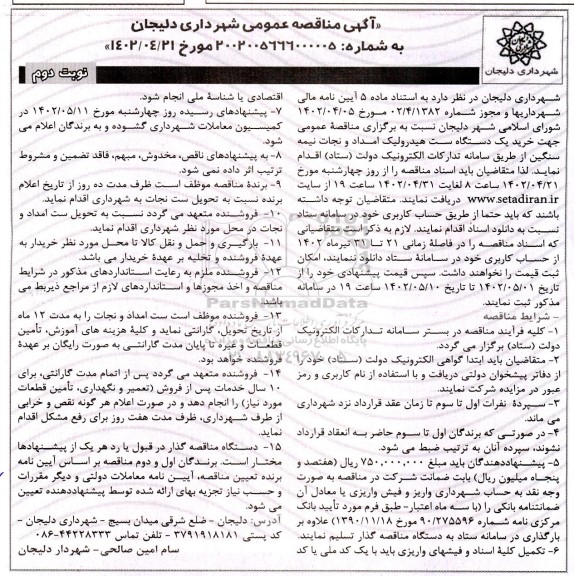 «آگهی مناقصه عمومی شهرداری دلیجان
به شماره: ۲۰۰۲۰۰۵۶۶۶۰۰۰۰۰۵ مورخ ۱۴۰۲/۰۴/۲۱»
نوبت دوم
شهرداری دلیجان
شهرداری دلیجان در نظر دارد به استناد ماده ۵ آیین نامه مالی
شهرداریها و مجوز شماره ۰۲/۴/۱۳۸۲ مورخ ۱۴۰۲/۰۴/۰۵
شورای اسلامی شهر دلیجان نسبت به برگزاری مناقصه عمومی
جهت خرید یک دستگاه ست هیدرولیک امداد و نجات نیمه
سنگین از طریق سامانه تدارکات الکترونیک دولت (ستاد) اقدام
نماید. لذا متقاضیان باید اسناد مناقصه را از روز چهارشنبه مورخ
۱۴۰۲/۰۴/۲۱ ساعت ۸ لغایت ۱۴۰۲/۰۴/۳۱ ساعت ۱۹ از سایت
www.setadiran.ir دریافت نمایند. متقاضیان توجه داشته
باشند که باید حتما از طریق حساب کاربری خود در سامانه ستاد
نسبت به دانلود اسناد اقدام نمایند. لازم به ذکر است متقاضیانی
که اسناد مناقصه را در فاصلهٔ زمانی ۲۱ تا ۳۱ تیرماه ۱۴۰۲
از حساب کاربری خود در سامانهٔ ستاد دانلود ننمایند، امکان
ثبت قیمت را نخواهند داشت. سپس قیمت پیشنهادی خود را از
تاریخ ۱۴۰۲/۰۵/۰۱ تا تاریخ ۱۴۰۲/۰۵/۱۰ ساعت ۱۹ در سامانه
مذکور ثبت نمایند.
- شرایط مناقصه
۱- کلیه فرآیند مناقصه در بستر سامانه تدارکات الکترونیک
دولت (ستاد) برگزار می گردد.
۲- متقاضیان باید ابتدا گواهی الکترونیک دولت (ستاد) خود را
از دفاتر پیشخوان دولتی دریافت و با استفاده از نام کاربری و رمز
عبور در مزایده شرکت نمایند.
۳- سپردهٔ نفرات اول تا سوم تا زمان عقد قرارداد نزد شهرداری
می ماند.
۴- در صورتی که برندگان اول تا سوم حاضر به انعقاد قرارداد
نشوند، سپرده آنان به ترتیب ضبط می شود.
۵- پیشنهاددهندگان باید مبلغ ۷۵۰,۰۰۰,۰۰۰ ریال (هفتصد و
پنجاه میلیون ریال) بابت ضمانت شرکت در مناقصه به صورت
وجه نقد به حساب شهرداری واریز و فیش واریزی یا معادل آن
ضمانتنامه بانکی را (با سه ماه اعتبار- طبق فرم مورد تأیید بانک
مرکزی نامه شماره ۹۰/۲۷۵۵۹۶ مورخ ۱۳۹۰/۱۱/۱۸) علاوه بر
بارگذاری در سامانه ستاد به دستگاه مناقصه گذار تسلیم نمایند.
۶- تکمیل کلیهٔ اسناد و فیشهای واریزی باید با یک کد ملی یا کد
اقتصادی یا شناسهٔ ملی انجام شود.
۷- پیشنهادهای رسیده روز چهارشنبه مورخ ۱۴۰۲/۰۵/۱۱ در
کمیسیون معاملات شهرداری گشوده و به برندگان اعلام می
شود.
۸- به پیشنهادهای ناقص، مخدوش، مبهم، فاقد تضمین و مشروط
ترتیب اثر داده نمی شود.
۹- برندهٔ مناقصه موظف است ظرف مدت ده روز از تاریخ اعلام
برنده نسبت به تحویل ست نجات به شهرداری اقدام نماید.
۱۰- فروشنده متعهد می گردد نسبت به تحویل ست امداد و
نجات در محل مورد نظر شهرداری اقدام نماید.
۱۱- بارگیری و حمل و نقل کالا تا محل مورد نظر خریدار به
عهدهٔ فروشنده و تخلیه بر عهدهٔ خریدار می باشد.
۱۲- فروشنده ملزم به رعایت استانداردهای مذکور در شرایط
مناقصه و اخذ مجوزها و استانداردهای لازم از مراجع ذیربط می
باشد.
۱۳- فروشنده موظف است ست امداد و نجات را به مدت ۱۲ ماه
از تاریخ تحویل، گارانتی نماید و کلیهٔ هزینه های آموزش، تأمین
قطعات و غیره تا پایان مدت گارانتی به صورت رایگان بر عهدهٔ
فروشنده خواهد بود.
۱۴- فروشنده متعهد می گردد پس از اتمام مدت گارانتی، برای
۱۰ سال خدمات پس از فروش (تعمیر و نگهداری، تأمین قطعات
مورد نیاز) را انجام دهد و در صورت اعلام هر گونه نقص و خرابی
از طرف شهرداری، ظرف مدت هفت روز برای رفع مشکل اقدام
نماید.
۱۵- دستگاه مناقصه گذار در قبول یا رد هر یک از پیشنهادها
مختار است. برندگان اول و دوم مناقصه بر اساس آیین نامه
برنده تعیین مناقصه، آیین نامه معاملات دولتی و دیگر مقررات
و حسب نیاز تجزیه بهای ارائه شده توسط پیشنهاددهنده تعیین
می شود.
آدرس: دلیجان - ضلع شرقی میدان بسیج - شهرداری دلیجان -
کد پستی ۳۷۹۱۹۱۸۱۸۱ - تلفن تماس ۴۴۲۲۸۳۳۳-۰۸۶
سام امین صالحی- شهردار دلیجان
ParsNamadData